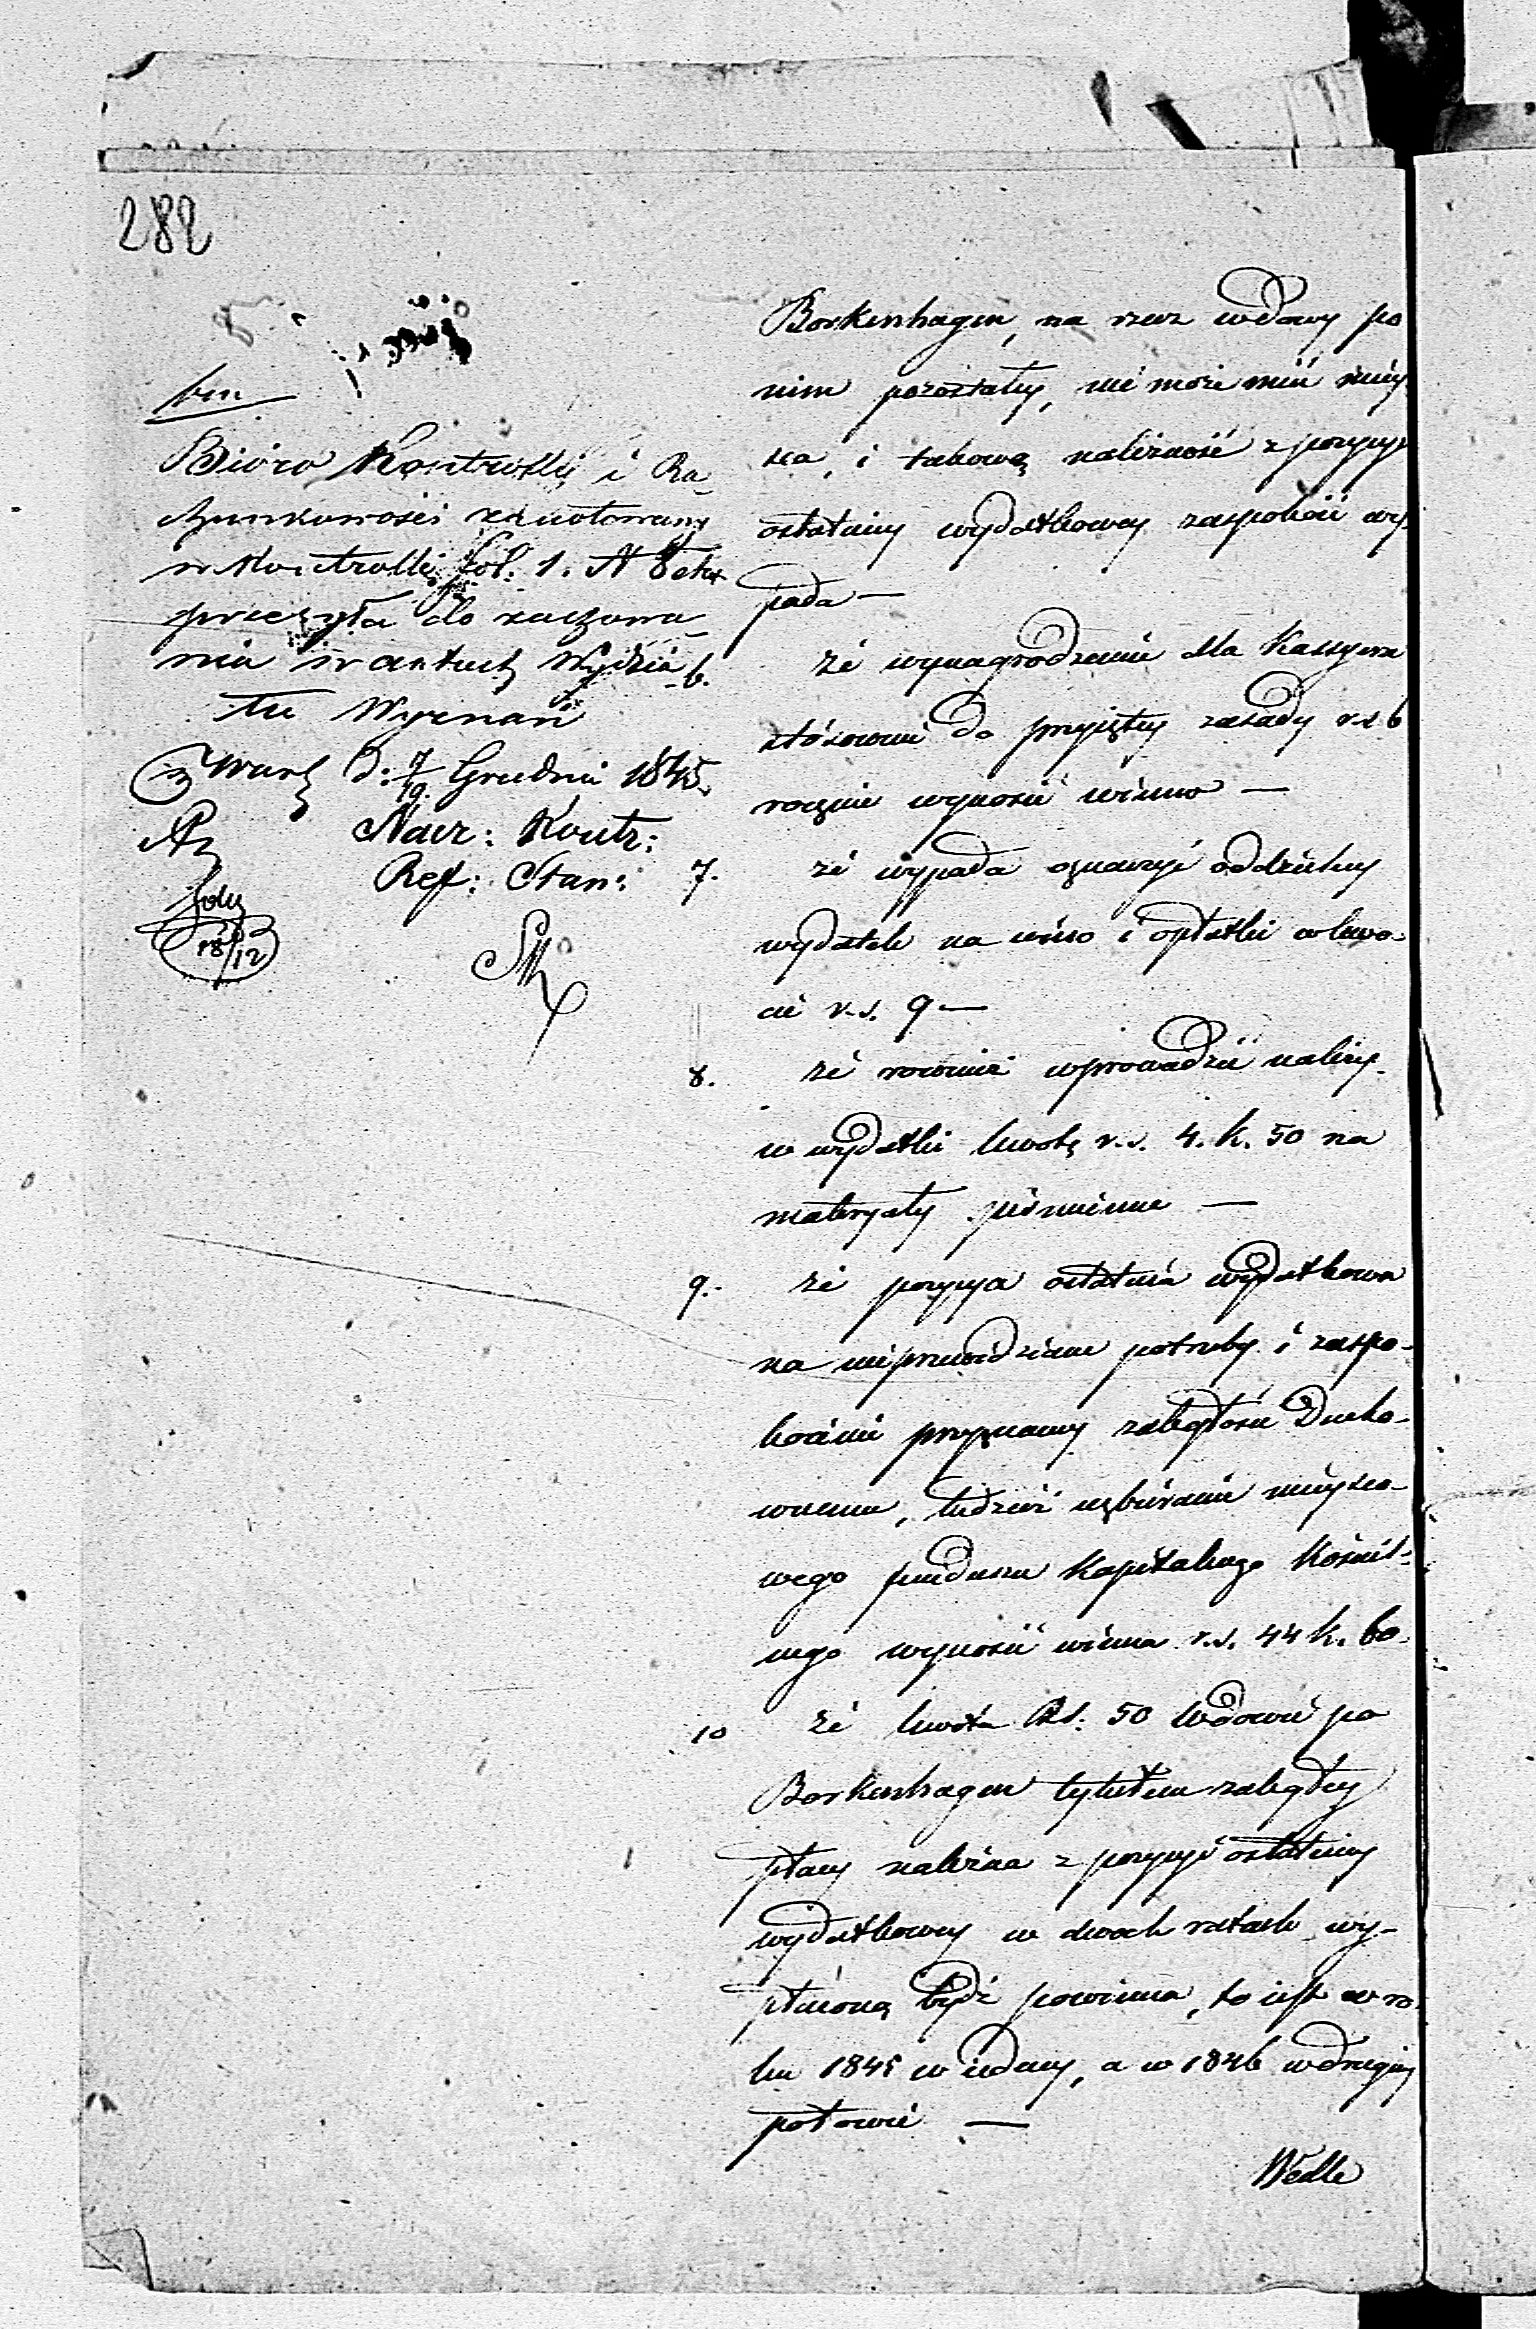 282
Bióro Kontrolli i Ra-
chunkowości zanotowany
w Kontrolli fol: 1. N 8 etc
przesyła do zachowa-
nia w aktach Wydzia-
łu Wyznań
Warsz d: 7/19 Grudnia 1845
Nacz: Kontr:
Ref: Stan:
18/12
Borkenhagen, na rzecz wdowy po
nim pozostałey, nie może mieć miey-
sca, i takową należność z pozycyi
ostatniey wydatkowey zaspokoić wy-
pada —
6. że wynagrodzenie dla Kassyera
stósownie do przyiętey zasady r.s. 6
rocznie wynosić winno —
7. że wypada oznaczyć oddzielny
wydatek na wino i opłatki w kwo-
cie r.s. 9 —
8. że rownież wprowadzić należy
w wydatki kwotę r.s. 4. k. 50 na
materyały piśmienne —
9. że pozycya ostatnia wydatkowa
na nieprzewidziane potrzeby i zaspo-
kojenie przyznaney zaległości Ducho-
wnemu, tudzież uzbieranie mieysco-
wego funduszu Kapitalnego Kościel-
nego wynosić winna r.s. 44 k. 60.
10 że kwota Rs. 50 wdowie po
Borkenhagen tytułem zaległey
płacy należna z pozycyi ostatniey
wydatkowey w dwoch ratach wy-
płaconą bydź powinna, to iest w ro-
ku 1845 w iedney, a w 1846 w drugiey
połowie —
Wedle